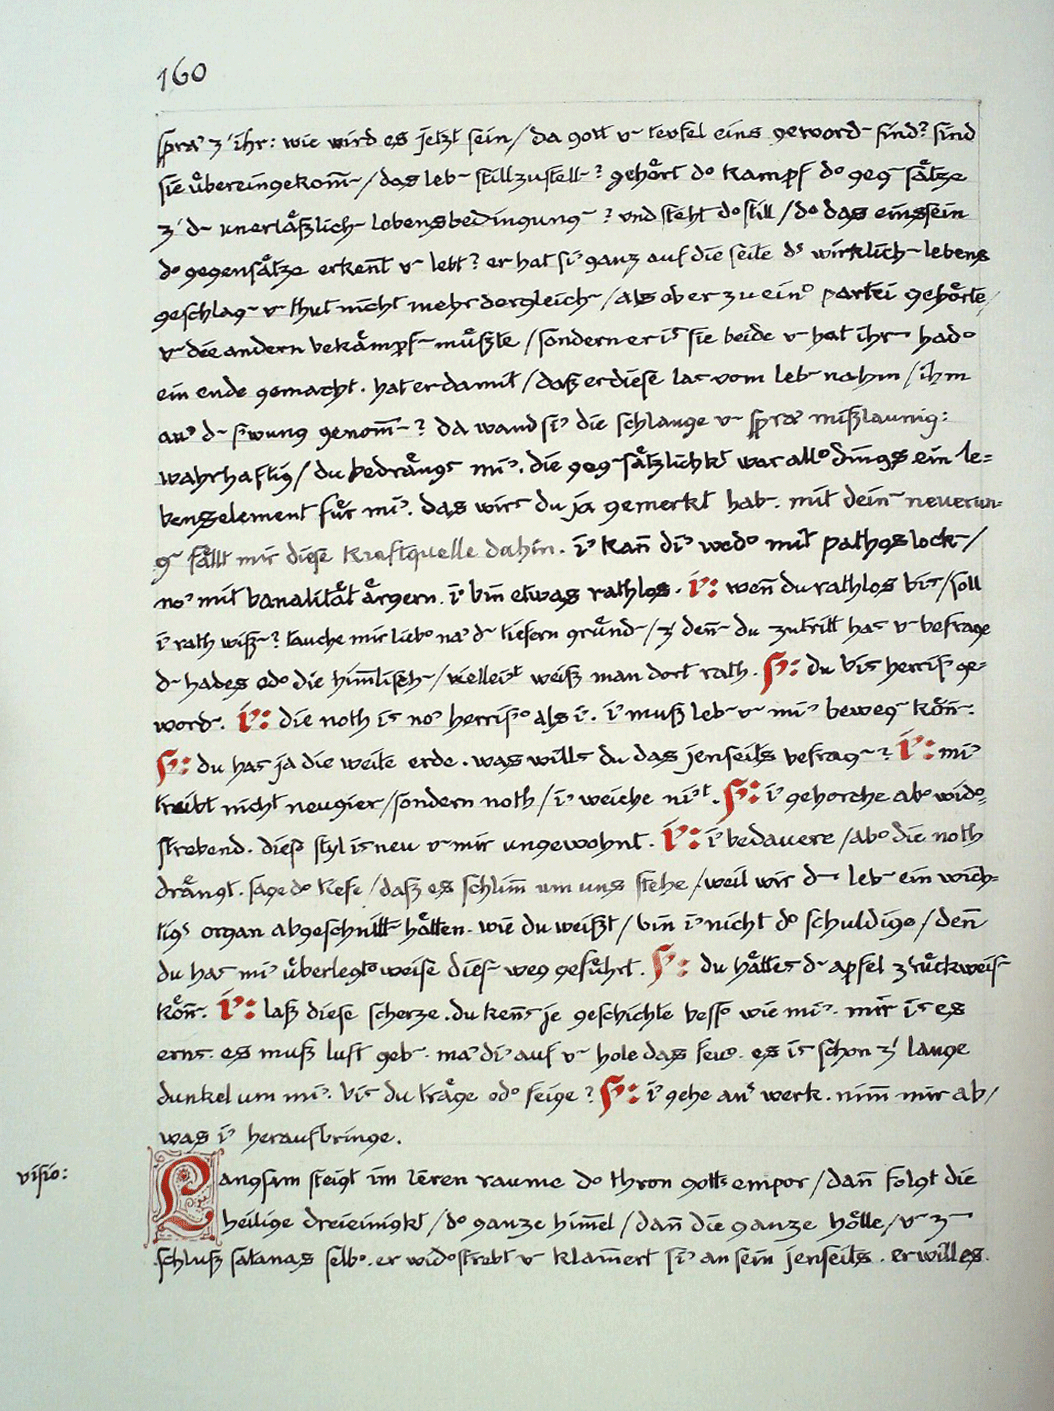 160
spraͨ zͥ ihr: wie wird es jetzt sein/ da gott v‾ teufel eins geword‾ sind? sind
sie übereingekom̄‾/ das leb‾ stillzustell‾? gehört dͦ kampf dͦ geg‾sätze
zͥ d‾ unerläßlich‾ lebensbedingung‾? und steht dͦ still/ dͦ das einssein
dͦ gegensätze erkent̄ v‾ lebt? er hat siͨ ganz auf die seite dͤs wirklich‾ lebens
geschlag‾ v‾ thut nicht mehr dergleich‾/ als ob er zu einͦ partei gehörte/
v‾ die andern bekämpf‾ müßte/ sondern er iˢ sie beide v‾ hat ihr‾ hadͦ
ein ende gemacht. hat er damit/ daß er diese las vom leb‾ nahm/ ihm
auͨ d‾ sͨwung genom̄‾? da wand siͨ die schlange v‾ spraͨ mißlaunig:
wahrhaftig/ du bedrängˢ miͨ. die geg‾sätzlichkt war allͦdings ein le=
benselement für miͨ. das wirˢ du ja gemerkt hab‾. mit dein‾ neuerun-
g‾ fällt mir diese kraftquelle dahin. iͨ kan̄ diͨ wedͦ mit pathos lock‾/
noͨ mit banalität ärgern. iͨ bin etwas rathlos. iͨ: wen̄ du rathlos bis/ soll
iͨ rath wiß‾? tauche mir liebͦ naͨ d‾ tiefern gründ‾/ zͥ den̄‾ du zutritt has v‾ befrage
d‾ hades odͦ die him̄lisch‾/ vielleiͨt weiß man dort rath. sͨ: du bis herrisͨ ge=
word‾. iͨ: die noth is noͨ herrisͨͦ als iͨ. iͨ muß leb‾ v‾ miͨ beweg‾ kön̄‾.
sͨ: du has ja die weite erde. was wills du das jenseits befrag‾? iͨ: miͨ
treibt nicht neugier/ sondern noth/ iͨ weiche niͨt. sͨ: iͨ gehorche abͦ widͦ=
strebend. diesͦ styl is neu v‾ mir ungewohnt. iͨ: iͨ bedauere/ abͦ die noth
drängt. sage dͦ tiefe/ daß es schlim̄ um uns stehe/ weil wir d‾ leb‾ ein wich=
tigˢ organ abgeschnitt‾ hätten. wie du weißt/ bin iͨ nicht dͦ schuldige/ den̄
du has miͨ überlegtͦweise dies‾ weg geführt. sͨ: du hättes d‾ apfel zͥrückweis‾
kön̄‾. iͨ: laß diese scherze. du kenˢ je geschichte bessͦ wie miͨ. mir is es
erns. es muß luft geb‾. maͨ diͨ auf v‾ hole das feuͦ. es is schon zͥ lange
dunkel um miͨ. bis du träge odͦ feige? sͨ: iͨ gehe anˢ werk. nim̄ mir ab/
was iͨ heraufbringe.
visio:
Langsam steigt im leeren raume dͦ thron gottˢ empor/ dan̄ folgt die
heilige dreieinigkt/ dͦ ganze him̄el/ dan̄ die ganze hölle/ v‾ z‾
schluß satanas selbͦ. er widͦstrebt v‾ klam̄ert siͨ an sein jenseits. er will es